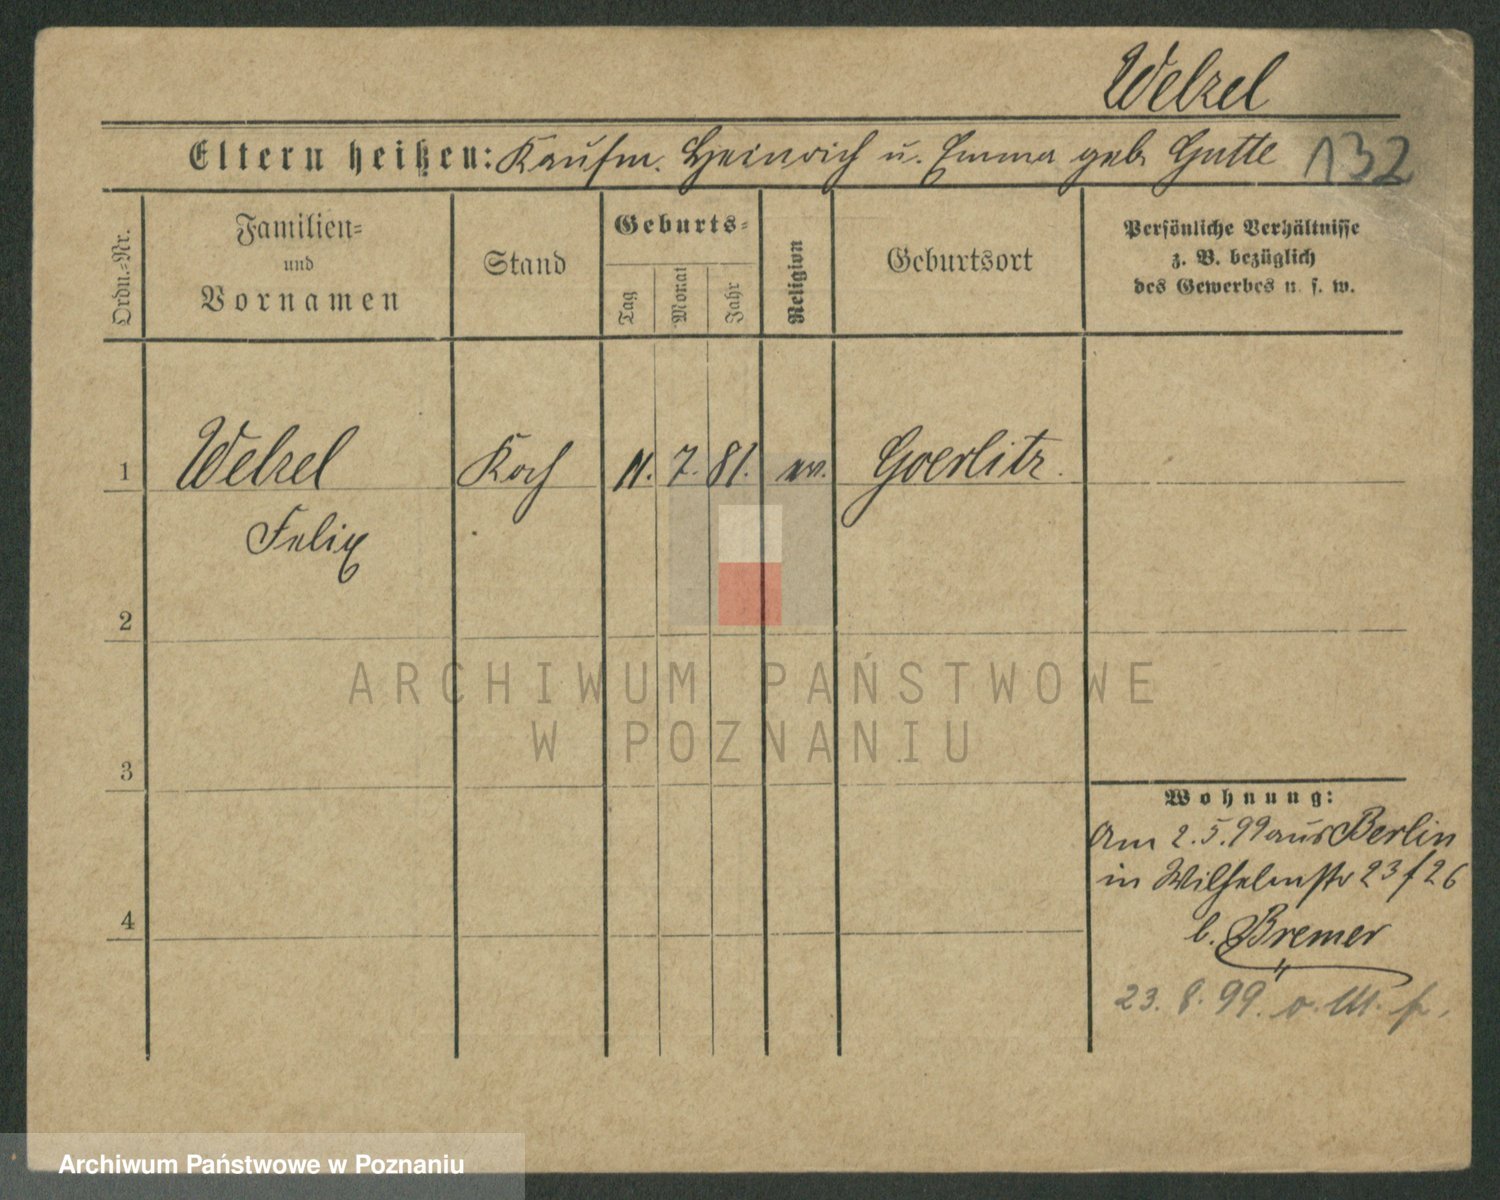 Welzel
Eltern heißen: Kaufm. Heinrich u. Emma geb. Gutte 132
Ordn.-Nr.
Familien-
und
Vornamen
Stand
Geburts-
Tag
Monat
Jahr
Religion
Geburtsort
Persönliche Verhältnisse
z. B. bezüglich
des Gewerbes u. s. w.
1 Welzel Koch 11. 7. 81. ev. Goerlitz.
Felix
2
3
4
Wohnung:
Am 2.5.99 aus Berlin
in Wilhelmstr 23/26
b. Bremer
23. 8. 99.
ARCHIWUM PAŃSTWOWE
W POZNANIU
Archiwum Państwowe w Poznaniu